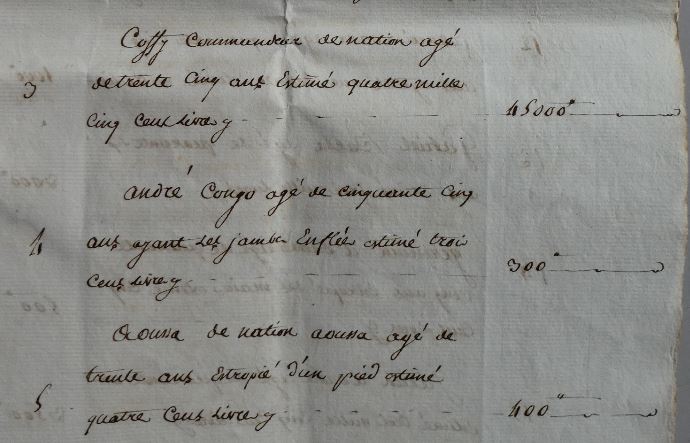 Coffy Commandeur de nation agé
3 de trente Cinq ans Estimé quatre mille
Cinq Cens Livres 45000"
andré Congo agé de cinquante Cinq
4 ans ayant les jambes Enflées estimé trois
Cens Livres 300"
aoussa de nation aoussa agé de
trente ans Estropié d'un pied estimé
5 quatre Cens Livres 400"